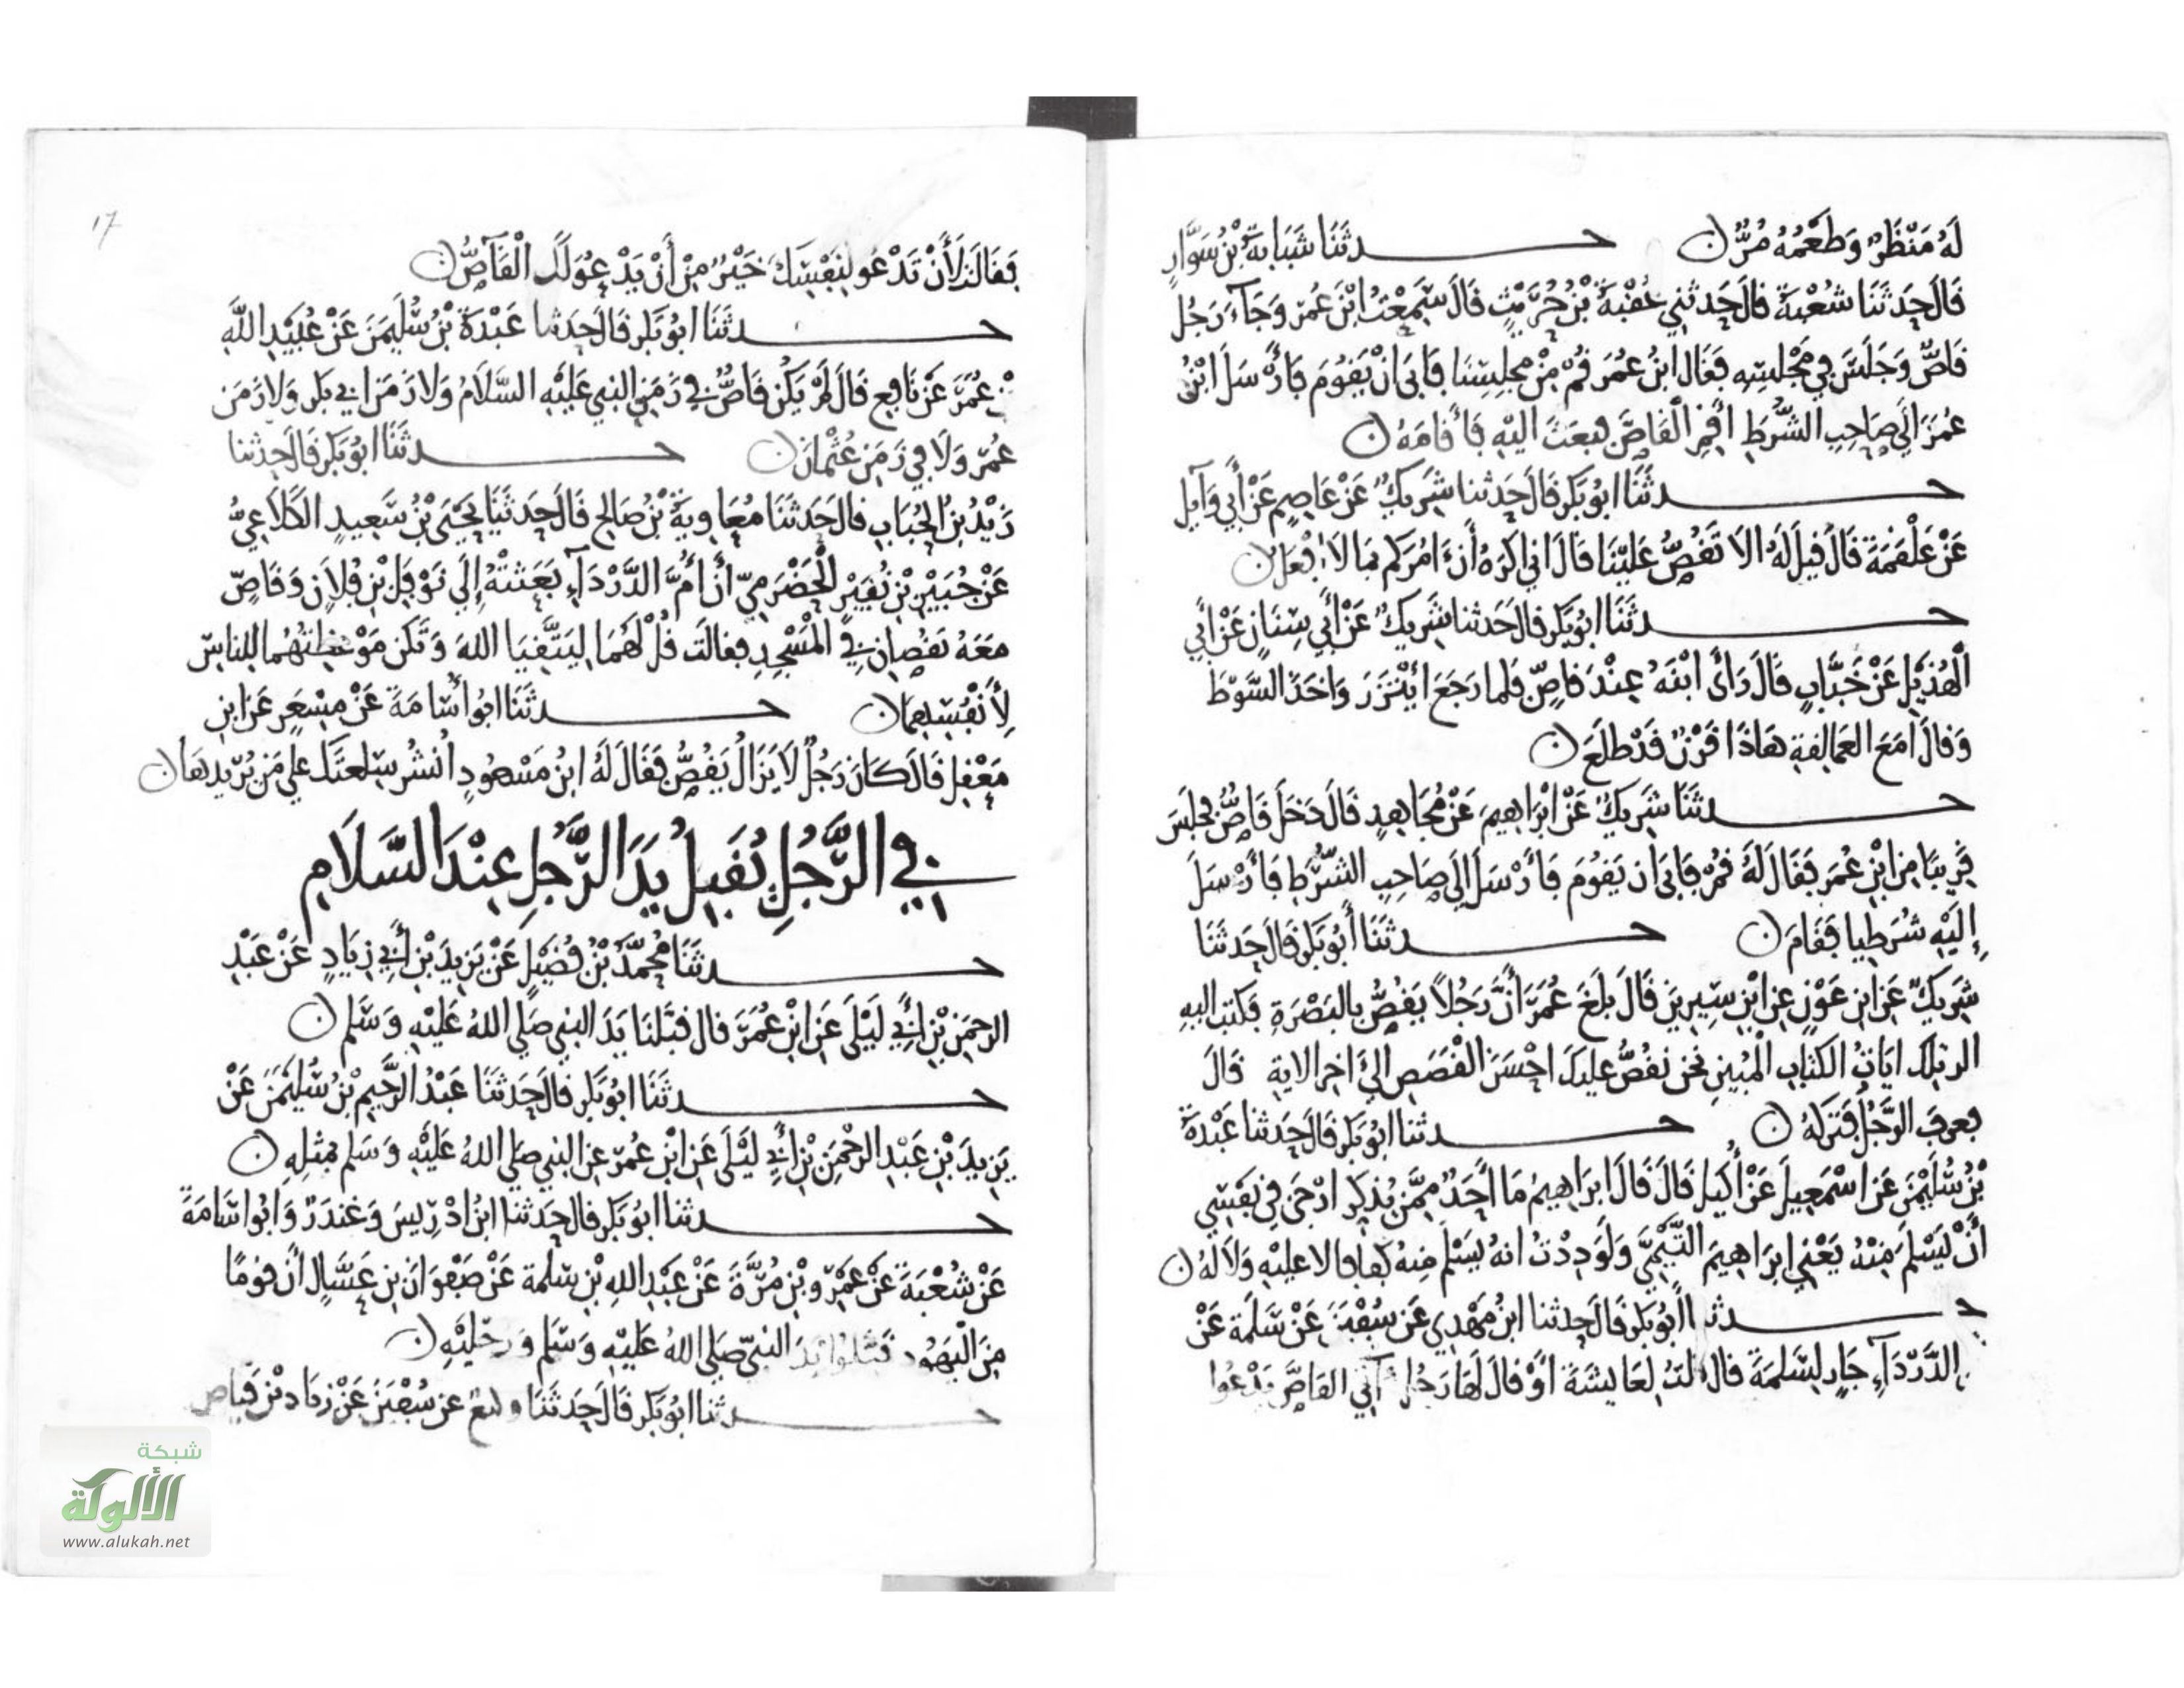 لَهُ مَنْظَرٌ وَطَعْمُهُ مُرٌّ ن حـدثَنَا شَبَابَةُ بْنُ سَوَّارٍ
قَالَ حَدثَنَا شُعْبَةُ قالَ حَدثني عُقْبَةُ بْنُ حُرَيْثٍ قَالَ سَمِعْتُ ابْنَ عُمَرَ وَجَآءَ رَجُلٌ
قَاصٌّ وَجَلَسَ فِي مَجْلِسِهِ فَقَالَ ابنُ عُمَرَ قُمْ مِنْ مجلِسِنَا فَابَى انْ يَقُومَ فَأَرْسَلَ ابْنُ
عُمَرَ الَى صَاحِبِ الشُّرَطِ أَقِمِ الْقَاصَّ فبَعَثَ اليْهِ فَأَقَامَهُ ن
حـدثَنَا ابُو بَكرٍ قَالَ حَدثنا شَرِيكٌ عَنْ عَاصِمٍ عَنْ أَبِي وَآيِلٍ
عَنْ عَلْقَمَةَ قَالَ قيلَ لَهُ الا تَقُصُّ عَلَيْنَا قَالَ اني اكرَهُ أَنْ ءَامُرَكم بمَا لَا افْعَلُ ن
حـدثَنَا ابُو بَكرٍ قالَ حَدثنا شَرِيكٌ عَنْ أَبِي سِنَانٍ عَنْ أَبِي
الْهُذَيْلِ عَنْ خَبَّابٍ قَالَ رَأَى ابْنَهُ عِنْدَ قَاصٍّ فَلما رَجَعَ ايْتَزَرَ وَاخَذَ السَّوْطَ
وَقالَ امَعَ العَمَالِقةِ هَاذَا قَرْنٌ قَدْ طلَعَ ن
حـدثَنَا شَرِيكٌ عَنْ ابْرَاهِيمَ عَنْ مُجَاهِدٍ قَالَ دَخَلَ قَاصٌّ فجلَسَ
قَرِيبًا مِنِ ابْنِ عُمَرَ فَقَالَ لَهُ قُمْ فَابَى ان يَقُومَ فَأَرْسَلَ إِلَى صَاحِبِ الشُّرَطِ فَأَرْسَلَ
إِلَيْهِ شُرَطِيا فَقَامَ ن حـدثَنَا أَبُو بَكرٍ قالَ حَدثَنَا
شَرِيكٌ عَنِ ابنِ عَوْنٍ عنِ ابْنِ سِيرِينَ قَالَ بلَغَ عُمَرَ أَنَّ رَجُلاً يَقُصُّ بالبَصْرَةِ فَكتبَ اليهِ
الر تلكَ ايَاتُ الكتَابِ الْمُبِينِ نحن نقُصُّ عليكَ احْسَنَ الْقَصَصِ الى ءَاخرِ الايةِ قَالَ
فعرفَ الرَّجُلُ فَتَرَكَهُ ن حـدثَنا ابُو بَكرٍ قالَ حَدثنا عَبْدَةُ
بْنُ سُلَيْمٰنَ عَنِ اسْمٰعِيلَ عَنْ أُكَيْلٍ قَالَ قَالَ ابرَاهِيمُ مَا أَحَدٌ مِمَّن يُذكِّرُ ارْجَى فِي نفْسِي
أَنْ يَسْلَمَ مِنْهُ يَعْنِي ابرَاهِيمَ التَّيْمِيَّ وَلَوَدِدْتُ انهُ يَسْلَمُ منهُ كفَافًا لا عليْهِ وَلَا لَهُ ن
حـدثنا أبُو بَكرٍ قَالَ حَدثنا ابنُ مَهْدِي عَن سُفْيٰنَ عَنْ سَلَمَةَ عَنْ
الدَّرْدَآءِ جَارٍ لِسَلَمَةَ قالَ قلتُ لِعَايشَةَ أَوْ قالَ لَهَا رَجُلٌ آتي القاصَّ يَدْعُوا
17
فَقَالَتْ لَأَنْ تَدْعُو لِنَفْسِكَ خَيْرٌ مِنْ أَنْ يَدْعُوَ لَكَ الْقَآصُّ ن
حـدثَنَا ابُو بَكرٍ قالَ حَدثنا عَبْدَةُ بْنُ سُلَيْمٰنَ عَنْ عُبَيْدِ اللَّهِ
بْنِ عُمَرَ عَنْ نَافِعٍ قَالَ لَمْ يَكُنْ قَاصٌّ فِي زَمَنِ النبي عَلَيْهِ السَّلَامُ وَلَا زَمَنِ ابي بَكرٍ وَلا زَمَنِ
عُمَرَ وَلَا فِي زَمَنِ عُثْمَانَ ن حـدثَنَا ابُو بَكرٍ قَالَ حَدثنا
زَيْدُ بْنُ الْحُبَابِ قالَ حَدثَنَا مُعَاوِيَةُ بْنُ صَالِحٍ قَالَ حَدثَنَا يَحْيَى بْنُ سَعِيدٍ الْكَلَاعِيُّ
عَنْ جُبَيْرِ بْنِ نُفَيْرٍ الْحَضْرَمِيِّ أَنَّ أُمَّ الدَّرْدَآءِ بَعَثَتْهُ إِلَى نَوْفَلِ بْنِ فُلَانٍ وَقَاصٍّ
مَعَهُ يَقُصَّانِ فِي الْمَسْجِدِ فقالَت قُلْ لَهُمَا ليَتَّقيَا اللهَ وَتَكن مَوْعِظتُهُمَا للنَّاسِ
لِأَنْفُسِهِمَا ن حـدثَنَا ابُو أُسَامَةَ عَنْ مِسْعَرٍ عَنِ ابنِ
مَعْقِلٍ قَالَ كَانَ رَجُلٌ لَا يَزَالُ يَقُصُّ فَقَالَ لَهُ ابنُ مَسْعُودٍ انْشُر سِلعتَكَ علي مَن يُرِيدهَا ن
فِي الرَّجُلِ يُقَبِّلُ يَدَ الرَّجُلِ عِنْدَ السَّلَامِ
حـدثَنَا مُحَمَّدُ بْنُ فُضَيْلٍ عَنْ يَزِيدَ بْنِ أَبِي زِيَادٍ عَنْ عَبْدِ
الرحمَنِ بْنِ أَبِي لَيْلَى عَنِ ابْنِ عُمَرَ قال قبَّلنَا يَدَ النبي صَلَى اللهُ عَلَيْهِ وَسَلم ن
حـدثَنَا ابُو بَكرٍ قَالَ حَدثَنَا عَبْدُ الرَّحِيمِ بْنُ سُلَيْمٰنَ عَنْ
يَزِيدَ بْنِ عَبْدِ الرحْمٰنِ بْنِ أَبِي لَيْلَى عَنِ ابْنِ عُمَرَ عنِ النبي صَلى اللهُ عَلَيْهِ وَسَلم بمثلِهِ ن
حـدثنا ابُو بَكرٍ قالَ حَدثنا ابْنُ ادْرِيسَ وَغندَرٌ وَابُو اسَامَةَ
عَنْ شُعْبَةَ عَنْ عَمْرِو بْنِ مُرَّةَ عَنْ عَبْدِ اللهِ بْنِ سَلمة عَنْ صَفْوَانَ بنِ عَسَّالٍ أَن قومًا
مِنَ الْيَهُودِ قَبَّلُوا يَدَ النبيِّ صَلى اللهُ عَلَيْهِ وَسَلم وَرِجْلَيْهِ ن
حـدثنا ابُو بَكرٍ قَالَ حَدثَنَا وكيعٌ عن سُفْيٰنَ عَنْ زِيَادِ بْنِ فَيَّاضٍ
شبكة
الألوكة
www.alukah.net